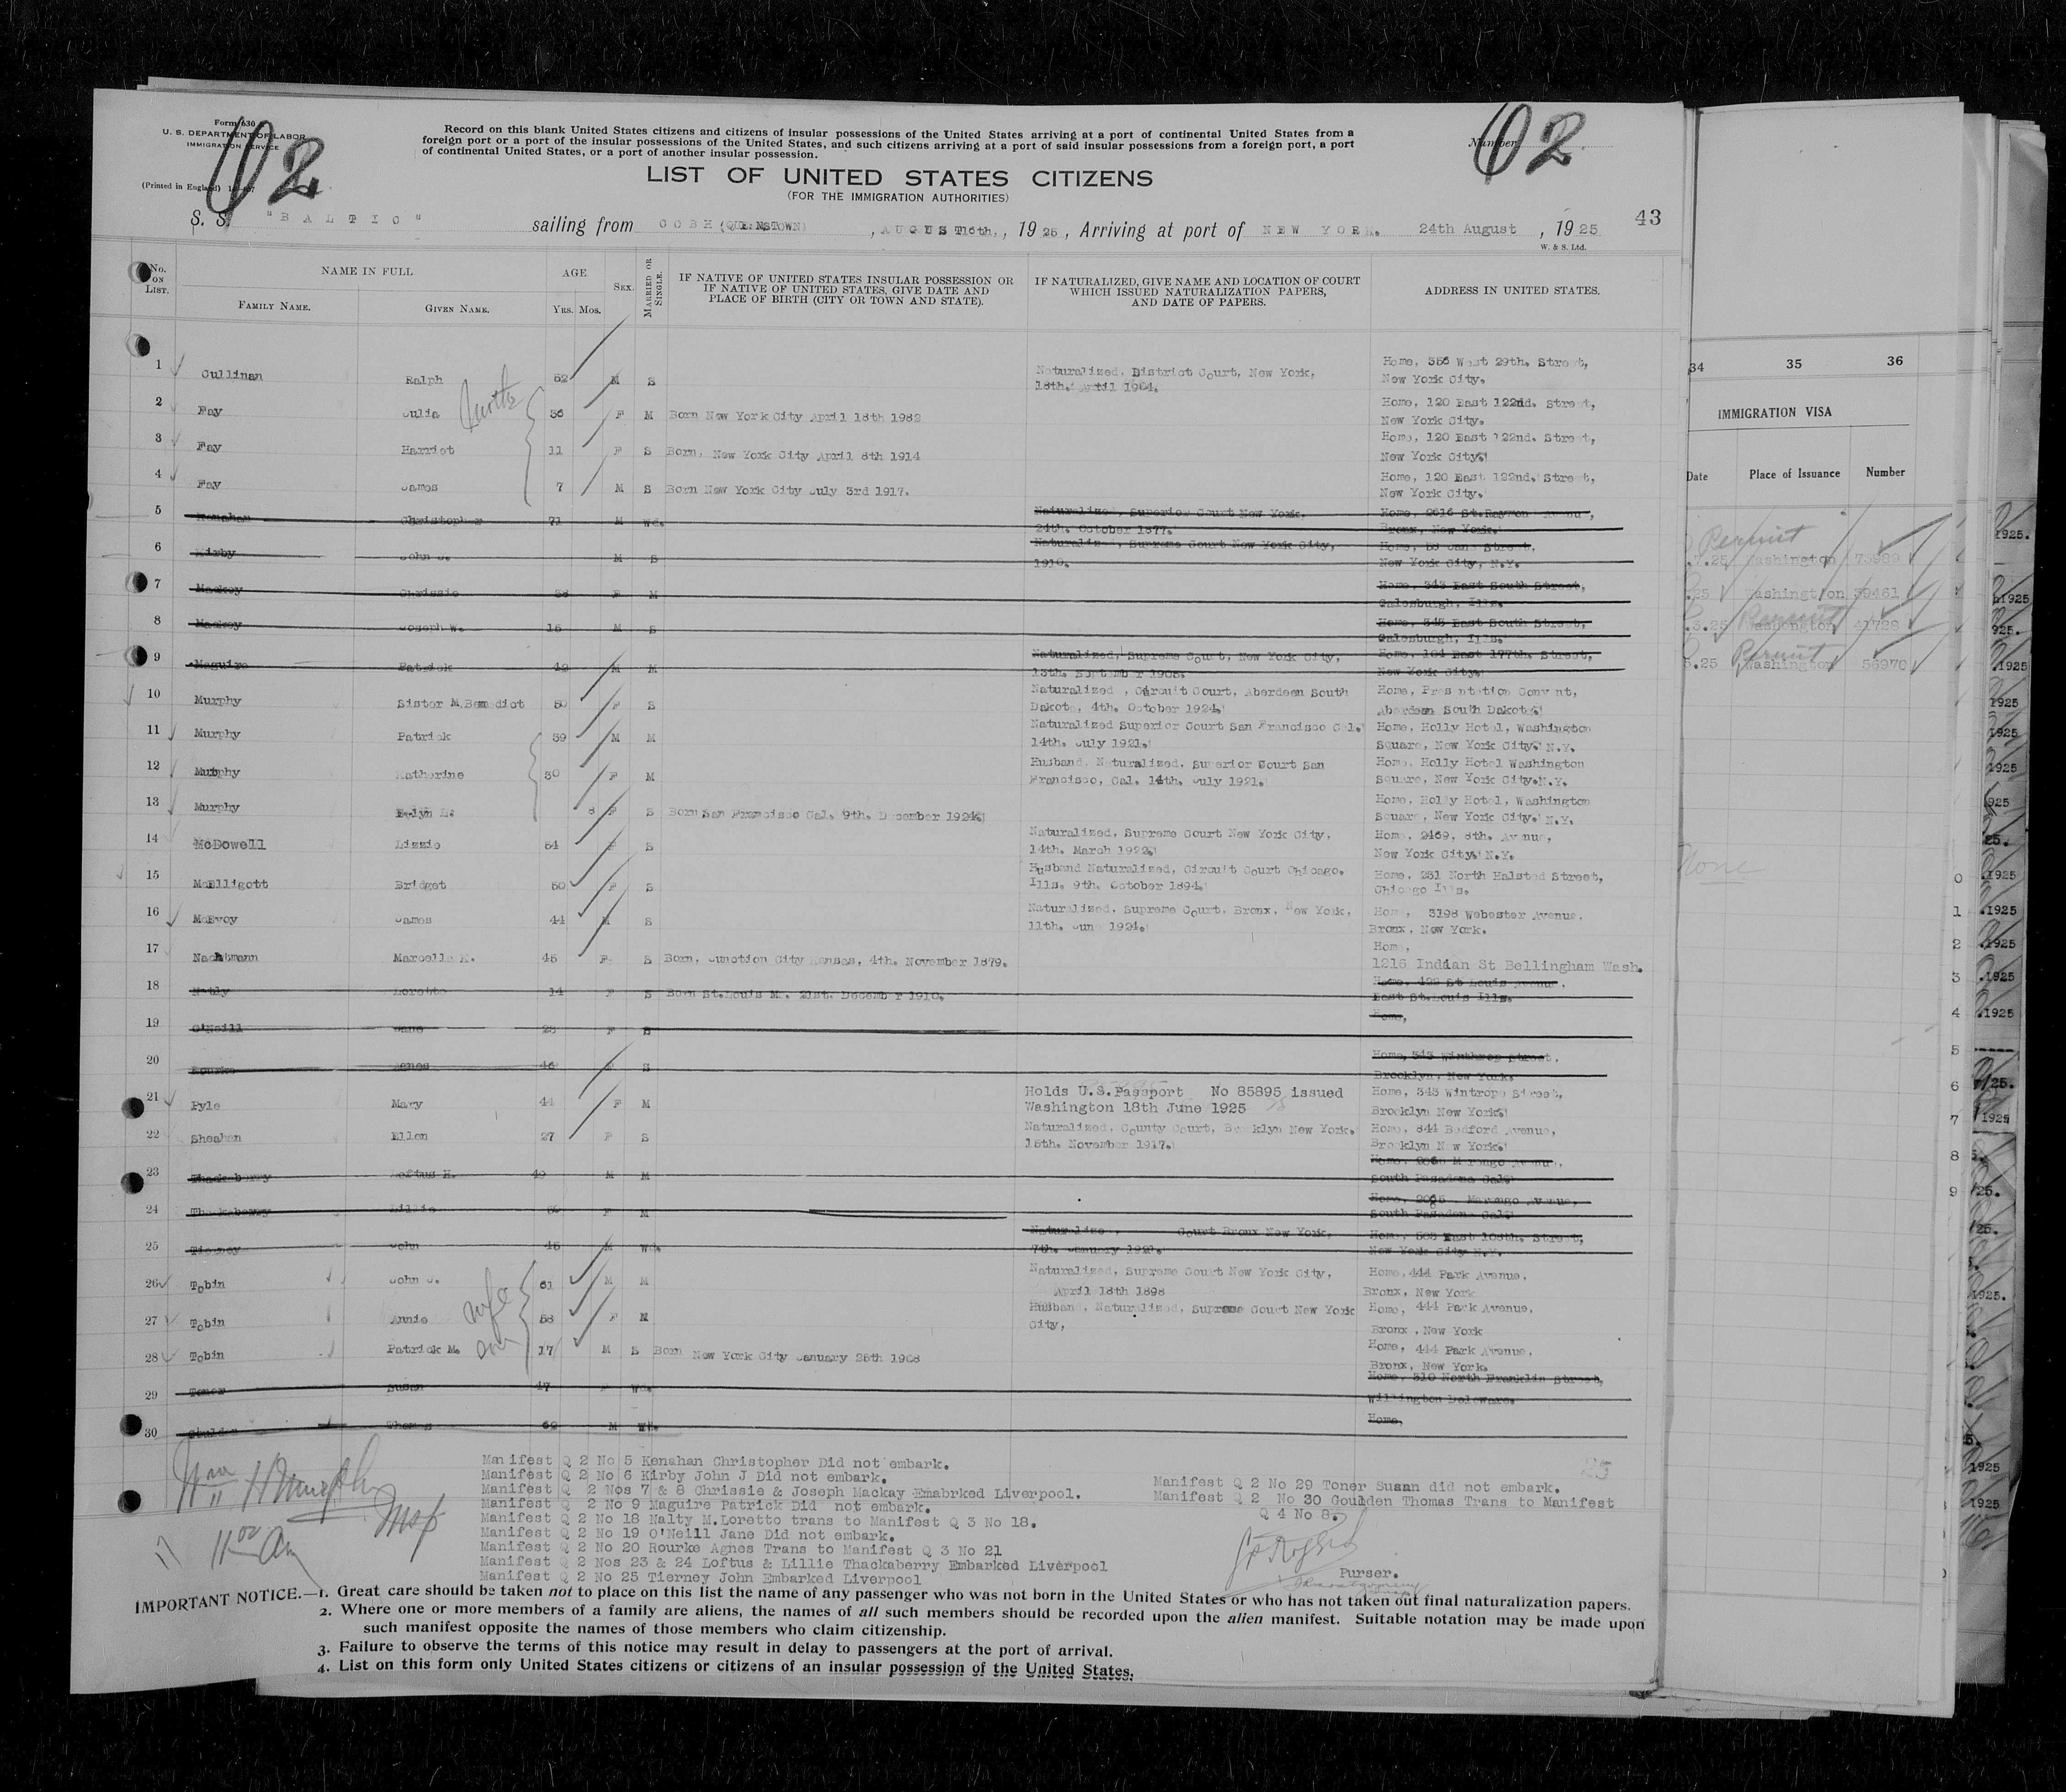 Form 630
U. S. DEPARTMENT OF LABOR
IMMIGRATION SERVICE
(Printed in England)
Q2
Record on this blank United States citizens and citizens of insular possessions of the United States arriving at a port of continental United States from a
foreign port or a port of the insular possessions of the United States, and such citizens arriving at a port of said insular possessions from a foreign port, a port
of continental United States, or a port of another insular possession.
Number
Q2
LIST OF UNITED STATES CITIZENS
(FOR THE IMMIGRATION AUTHORITIES)
43
S. S. "BALTIC" sailing from COBH (QUEENSTOWN), AUGUST 16th., 1925, Arriving at port of NEW YORK. 24th August, 1925
W. & S. Ltd.
No. ON LIST. NAME IN FULL AGE SEX. MARRIED OR SINGLE.
FAMILY NAME. GIVEN NAME. Yrs. Mos.
IF NATIVE OF UNITED STATES INSULAR POSSESSION OR
IF NATIVE OF UNITED STATES, GIVE DATE AND
PLACE OF BIRTH (CITY OR TOWN AND STATE).
IF NATURALIZED, GIVE NAME AND LOCATION OF COURT
WHICH ISSUED NATURALIZATION PAPERS,
AND DATE OF PAPERS.
ADDRESS IN UNITED STATES.
1 Cullinan Ralph 52 M S Naturalized, District Court, New York, Home, 356 West 29th. Street,
18th. April 1904. New York City.
2 Fay Julia 36 F M Born New York City April 18th 1982 Home, 120 East 122nd. Street,
New York City.
3 Fay Harriet 11 F S Born, New York City April 8th 1914 Home, 120 East 122nd. Street,
New York City.
4 Fay James 7 M S Born New York City July 3rd 1917. Home, 120 East 122nd. Street,
New York City.
5 Kenahan Christopher 71 M Wd. Naturalized, Superior Court New York, Home, 2616 St.Raymon Avenu,
24th. October 1877. Bronx, New York.
6 Kirby John J. M S Naturalized, Supreme Court New York City, Home, 53 Jane Street,
1910. New York City, N.Y.
7 Mackey Chrissie F M Home, 343 East South Street,
Galesburgh, Ills.
8 Mackey Joseph W. 15 M S Home, 343 East South Street,
Galesburgh, Ills.
9 Maguire Patrick 49 M M Naturalized, Supreme Court, New York City, Home, 164 East 177th. Street,
13th. September 1905. New York City.
10 Murphy Sister M.Benedict 50 F S Naturalized, Circuit Court, Aberdeen South Home, Presentation Convent,
Dakota, 4th. October 1924. Aberdeen South Dakota.
11 Murphy Patrick 39 M M Naturalized Superior Court San Francisco Cal. Home, Holly Hotel, Washington
14th. July 1921. Square, New York City. N.Y.
12 Murphy Katherine 30 F M Husband, Naturalized, Superior Court San Home, Holly Hotel Washington
Francisco, Cal. 14th. July 1921. Square, New York City.N.Y.
13 Murphy Evlyn L. 8 F S Born San Francisco Cal. 9th. December 1924. Home, Holly Hotel, Washington
Square, New York City. N.Y.
14 McDowell Lizzie 54 F S Naturalized, Supreme Court New York City, Home, 2469, 8th. Avenue,
14th. March 1922. New York City. N.Y.
15 McElligott Bridget 50 F S Husband Naturalized, Circuit Court Chicago. Home, 231 North Halsted Street,
Ills. 9th. October 1894. Chicago Ills.
16 McEvoy James 44 M S Naturalized, Supreme Court, Bronx, New York, Home, 3198 Webester Avenue.
11th. June 1924. Bronx, New York.
17 Nachtmann Marcella K. 45 F S Born, Junction City Kansas, 4th. November 1879. Home,
1216 Indian St Bellingham Wash.
18 Nally Loretto 14 F S Born St.Louis M. 21st. December 1910. Home, 422 St Louis Avenue.
East St.Louis Ills.
19 O'Neill Jane 25 F S Home,
20 Rourke Agnes 46 F S Home, 343 Winthrop Street,
Brooklyn, New York.
21 Pyle Mary 44 F M Holds U.S.Passport No 85895 issued Home, 343 Wintrope Street,
Washington 18th June 1925 Brooklyn New York.
22 Sheahan Ellen 27 F S Naturalized, County Court, Brooklyn New York. Home, 844 Bedford Avenue,
15th. November 1917. Brooklyn New York.
23 Thackaberry Loftus H. 49 M M Home, Marengo Avenue,
South Pasadena Cal.
24 Thackaberry Lillie F M Home, Marengo Avenue,
South Pasadena Cal.
25 Tierney John 45 M Wd. Naturalize, Court Bronx New York, Home, 583 East 108th. Street,
7th. January 1921. New York City N.Y.
26 Tobin John J. 61 M M Naturalized, Supreme Court New York City, Home, 444 Park Avenue,
April 18th 1898 Bronx, New York
27 Tobin Annie wife 58 F M Husband, Naturalized, Supreme Court New York Home, 444 Park Avenue,
City, Bronx, New York
28 Tobin Patrick M. son 17 M S Born New York City January 25th 1908 Home, 444 Park Avenue,
Bronx, New York.
29 Toner Susan 47 F Wd. Home, 310 North Franklin Street,
Willington Delaware.
30 Goulden Thomas 69 M Wd. Home,
25
Manifest Q 2 No 5 Kenahan Christopher Did not embark.
Manifest Q 2 No 6 Kirby John J Did not embark.
Manifest Q 2 Nos 7 & 8 Chrissie & Joseph Mackay Emabrked Liverpool.
Manifest Q 2 No 9 Maguire Patrick Did not embark.
Manifest Q 2 No 18 Nalty M.Loretto trans to Manifest Q 3 No 18.
Manifest Q 2 No 19 O'Neill Jane Did not embark.
Manifest Q 2 No 20 Rourke Agnes Trans to Manifest Q 3 No 21
Manifest Q 2 Nos 23 & 24 Loftus & Lillie Thackaberry Embarked Liverpool
Manifest Q 2 No 25 Tierney John Embarked Liverpool
Manifest Q 2 No 29 Toner Susan did not embark.
Manifest Q 2 No 30 Goulden Thomas Trans to Manifest
Q 4 No 8.
Purser.
Wm H Murphy
Insp
11 00 Am
IMPORTANT NOTICE.—1. Great care should be taken not to place on this list the name of any passenger who was not born in the United States or who has not taken out final naturalization papers.
2. Where one or more members of a family are aliens, the names of all such members should be recorded upon the alien manifest. Suitable notation may be made upon
such manifest opposite the names of those members who claim citizenship.
3. Failure to observe the terms of this notice may result in delay to passengers at the port of arrival.
4. List on this form only United States citizens or citizens of an insular possession of the United States.
34 35 36
IMMIGRATION VISA
Date Place of Issuance Number
Permit
.7.25 Washington 73989
.25 Washington 39461
Permit
3.25 Washington 41728
Permit
5.25 Washington 56970
None